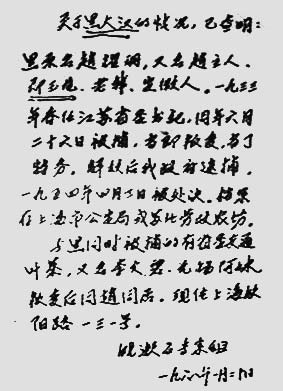 关于黑大汉的情况，已查明：
黑桑名趙理，又名趙主人、
老韩、出做人。一九三三
年春任江苏省委书记，同年六月
二十六日被捕，当即叛变，当了
特务。解放后我政府逮捕，
一九五四年四月三日被处决。档案
在上海市公安局或苏北劳改农场。
与黑同时被捕的有省委交通
叶某，又名李大，无锡阿妹，
叛变后同趙同居。现住上海欧
阳路一三一号。
专案组
一九六八年一月二日